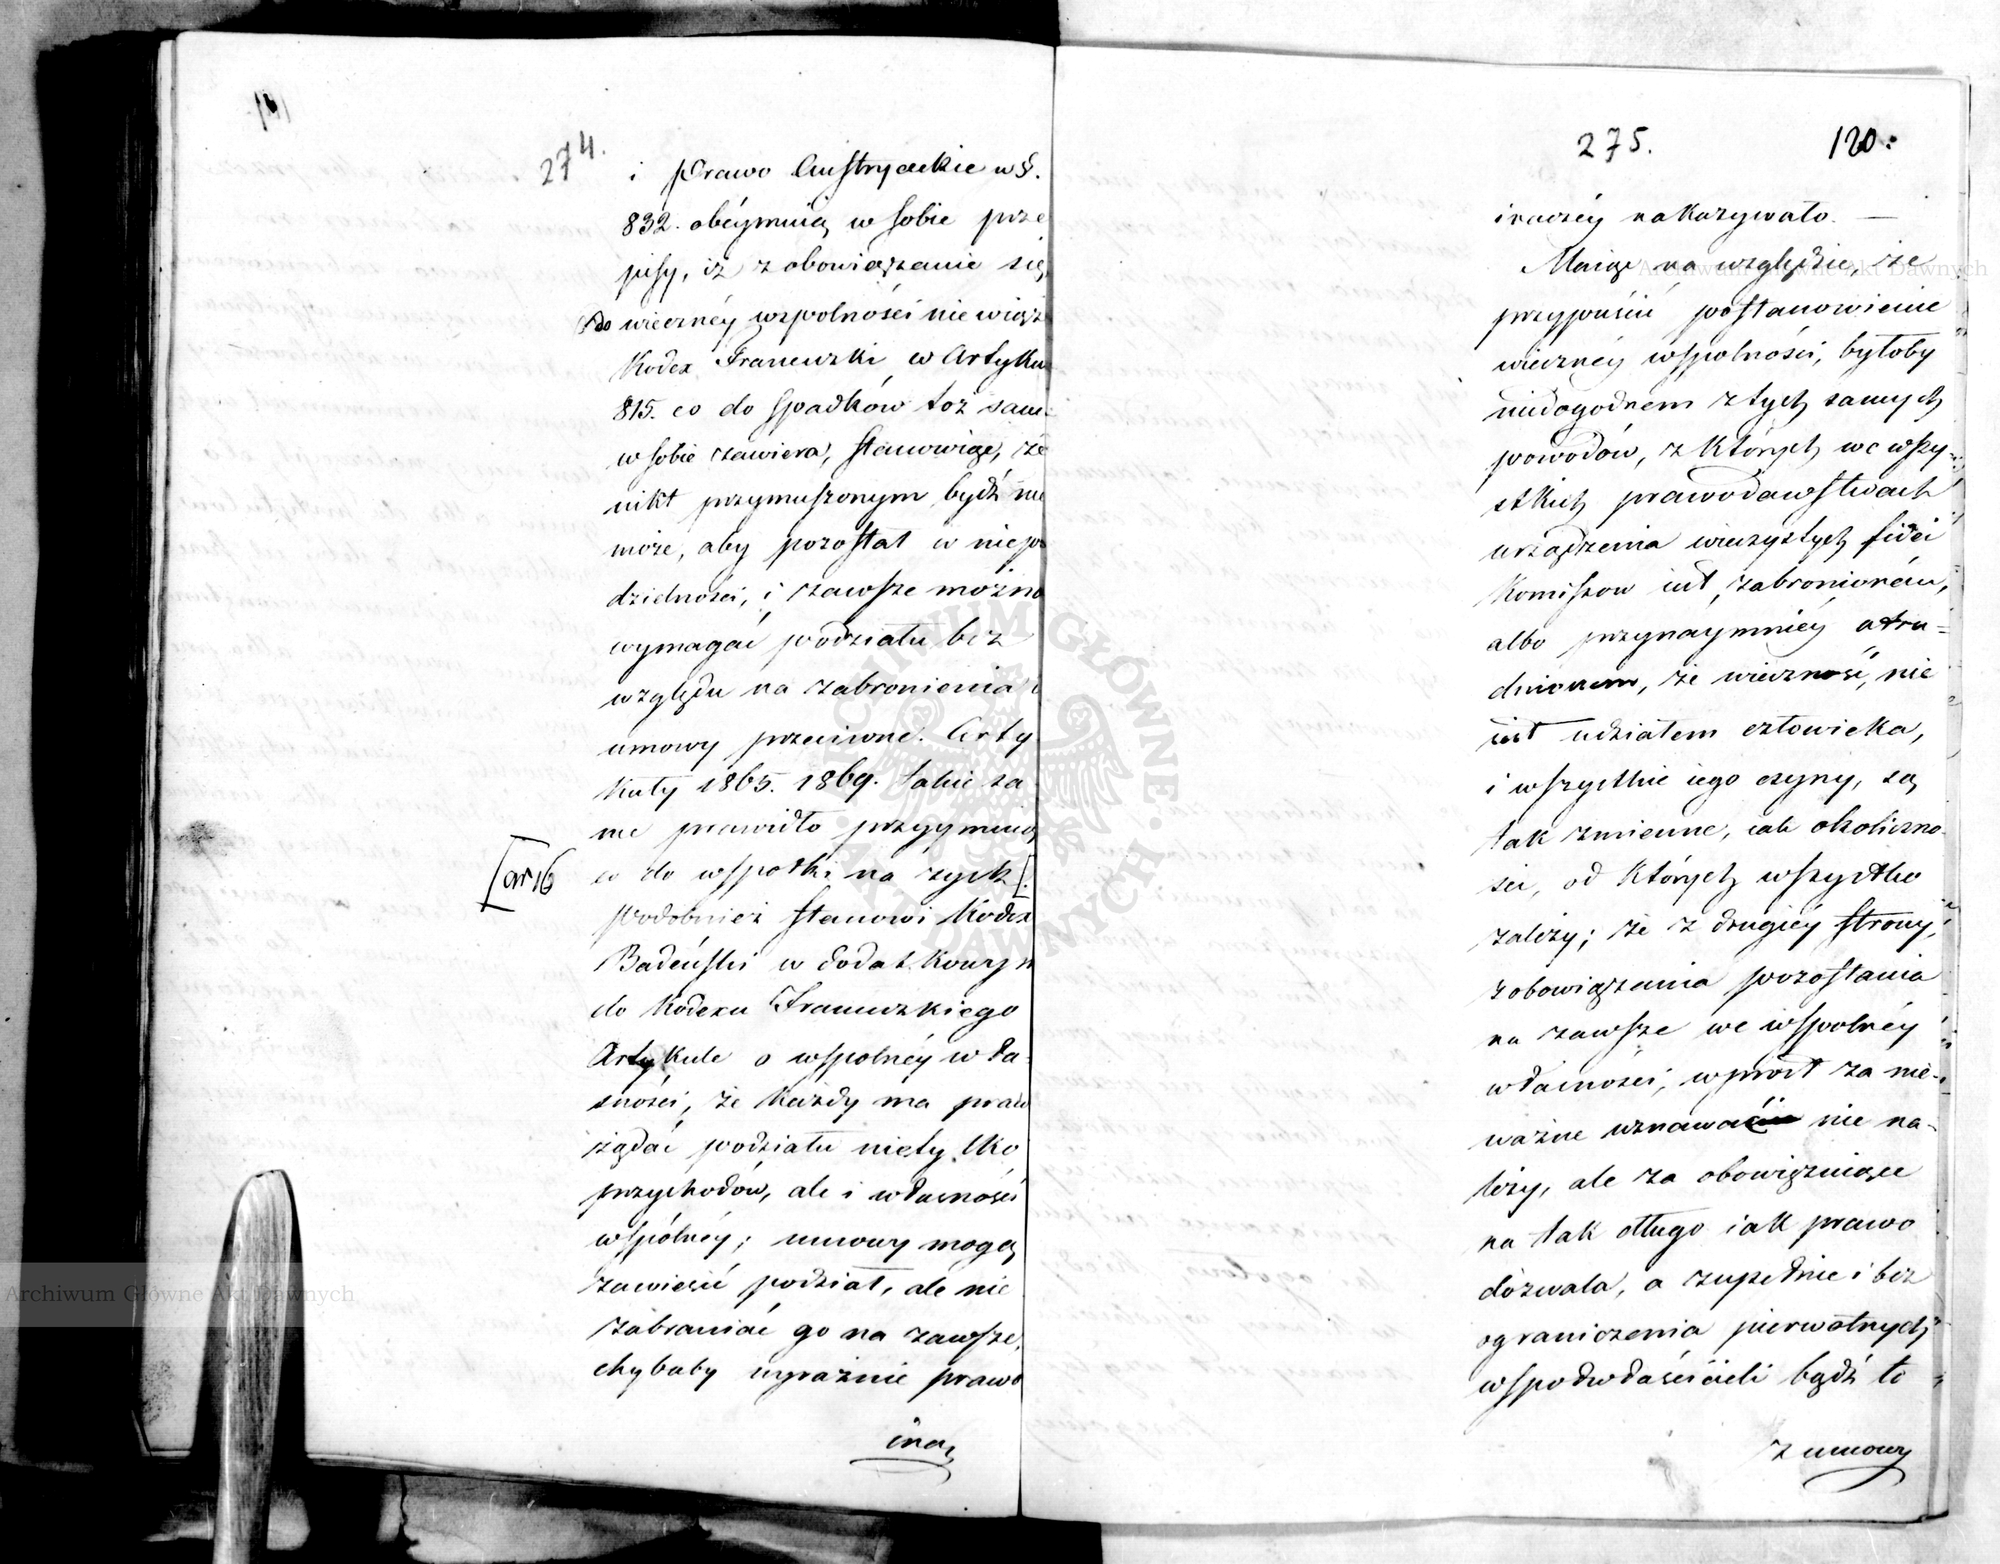 274.
i Prawo Austryackie w §.
832. obéymuią w sobie prze
pisy, iż zobowiązanie się
do wiecznéy wspolności nie wiąże
Kodex Francuzki w Artyku
815. co do spadków toż samo
w sobie zawiera, stanowiąc, że
nikt przymuszonym bydź nie
może, aby pozostał w niepo
dzielności, i zawsze można
wymagać podziału bez
względu na zabronienia i
umowy przeciwne. Arty
kuły 1865. 1869. takie sa
me prawidło przyymuią
co do wspołki na zysk [.
[ar 16
Podobnież stanowi Kodex
Badeński w dodatkowym
do Kodexu Francuzkiego
Artykule o wspolnéy wła
sności, że każdy ma prawo
żądać podziału nietylko
przychodów, ale i własności
wspólnéy; umowy mogą
zawiesić podział, ale nie
zabraniać go na zawsze,
chybaby wyraźnie prawo
ina,
275. 120:
inaczéy nakazywało. —
Maiąc na względzie, że
przypuścić postanowienie
wiecznéy wspolności, byłoby
niedogodném z tych samych
powodów, z których we wszy-
stkich prawodawstwach
urządzenia wieczystych fidei
Komissow iest zabronioném,
albo przynaymniéy utru=
dnionem, że wieczność, nie
iest udziałem człowieka,
i wszystkie iego czyny, są
tak zmienne, iak okoliczno
ści, od których wszystko
zależy; że z drugiéy strony,
zobowiązania pozostania
na zawsze we wspolnéy
własności, wprost za nie-
ważne uznawać nie na-
leży, ale za obowiązuiące
na tak długo iak prawo
dozwala, a zupełnie i bez
ograniczenia pierwotnych
wspołwłaścicieli bądź to
z umowy
Archiwum Główne Akt Dawnych
Archiwum Główne Akt Dawnych
ARCHIWUM GŁÓWNE AKT DAWNYCH